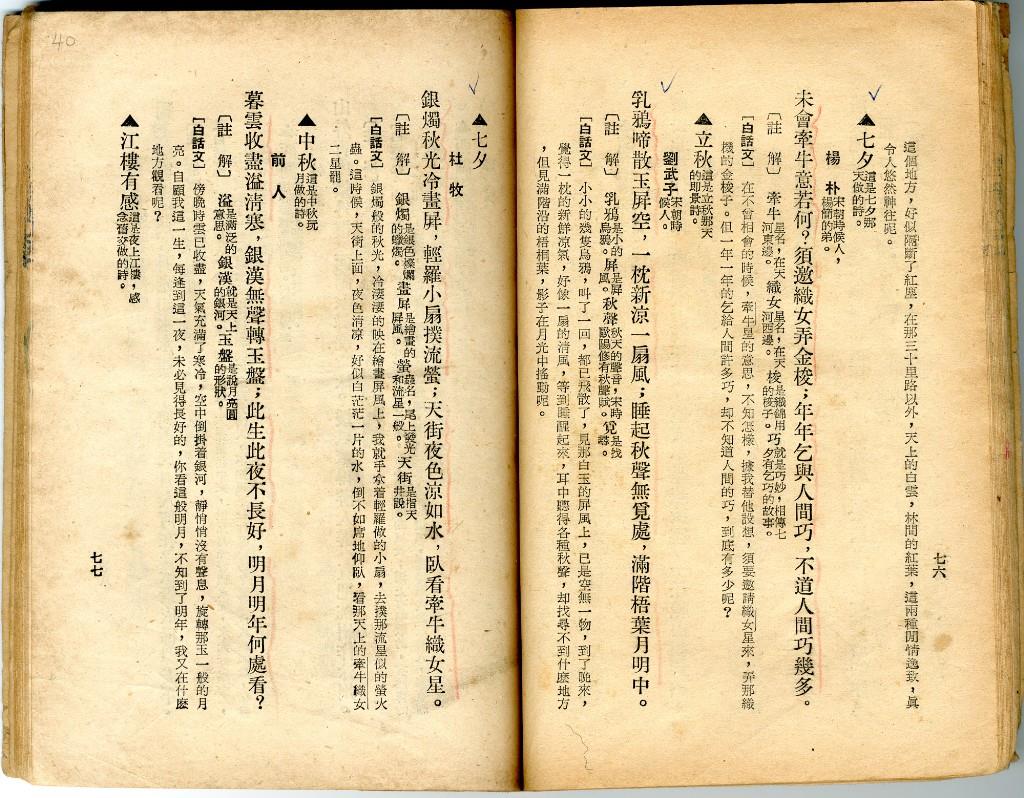 這個地方，好似隔斷了紅塵，在那三十里路以外，天上的白雲，林間的紅葉，這兩種閒情逸致，眞
令人悠然神往呢。
▲七夕這是七夕那天做的詩。
楊　朴宋朝時候人，楊簡的弟。
未會牽牛意若何？須邀織女弄金梭；年年乞與人間巧，不道人間巧幾多。
〔註　解〕　牽牛星名，在天河東邊。織女星名，在天河西邊。梭是織錦用的梭子。巧就是巧妙，相傳七夕有乞巧的故事。
〔白話文〕　在不曾相會的時候，牽牛星的意思，不知怎樣，據我替他設想，須要邀請織女星來，弄那織
機的金梭子。但一年一年的乞給人間許多巧，却不知道人間的巧，到底有多少呢？
▲立秋這是立秋那天的即景詩。
劉武子宋朝時候人。
乳鴉啼散玉屏空，一枕新涼一扇風；睡起秋聲無覓處，滿階梧葉月明中。
〔註　解〕　乳鴉是小的烏鴉。屏是屏風。秋聲秋天的聲音，宋時歐陽修有秋聲賦。覓是找尋。
〔白話文〕　小小的幾隻烏鴉，叫了一回，都已飛散了，見那白玉的屏風上，已是空無一物，到了晚來，
覺得一枕的新鮮凉氣，好像一扇的清風，等到睡醒起來，耳中聽得各種秋聲，却找尋不到什麽地方
，但見滿階沿的梧桐葉，影子在月光中搖動呢。
七六
40
▲七夕
杜　牧
銀燭秋光冷畫屏，輕羅小扇撲流螢；天街夜色涼如水，臥看牽牛織女星。
〔註　解〕　銀燭是銀色燦爛的蠟燭。畫屏是繪畫的屏風。螢蟲名，尾上發光和流星一般。天街是指天井說。
〔白話文〕　銀燭般的秋光，冷淒淒的映在繪畫屏風上，我就手拿着輕羅做的小扇，去撲那流星似的螢火
蟲。這時候，天街上面，夜色清凉，好似白茫茫一片的水，倒不如席地仰臥，看那天上的牽牛織女
二星罷。
▲中秋這是中秋玩月做的詩。
前　人
暮雲收盡溢清寒，銀漢無聲轉玉盤；此生此夜不長好，明月明年何處看？
〔註　解〕　溢是滿泛的意思。銀漢就是天上的銀河。玉盤是說月亮圓的形狀。
〔白話文〕　傍晚時雲已收盡，天氣充滿了寒冷，空中倒掛着銀河，靜悄悄沒有聲息，旋轉那玉一般的月
亮。自顧我這一生，每逢到這一夜，未必見得長好的，你看這般明月，不知到了明年，我又在什麽
地方觀看呢？
▲江樓有感這是夜上江樓，感念舊交做的詩。
七七